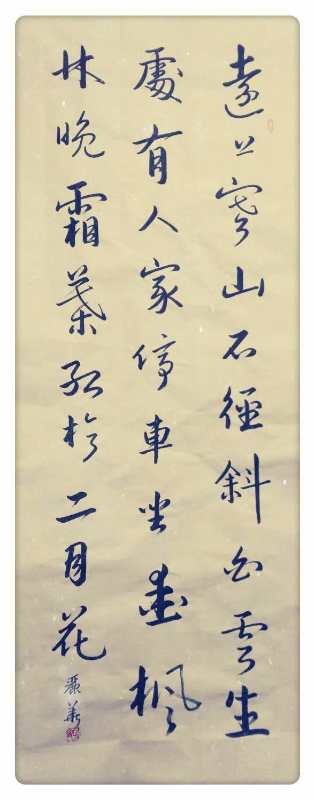 遠上寒山石徑斜白雲生
處有人家停車坐愛楓
林晚霜葉紅於二月花